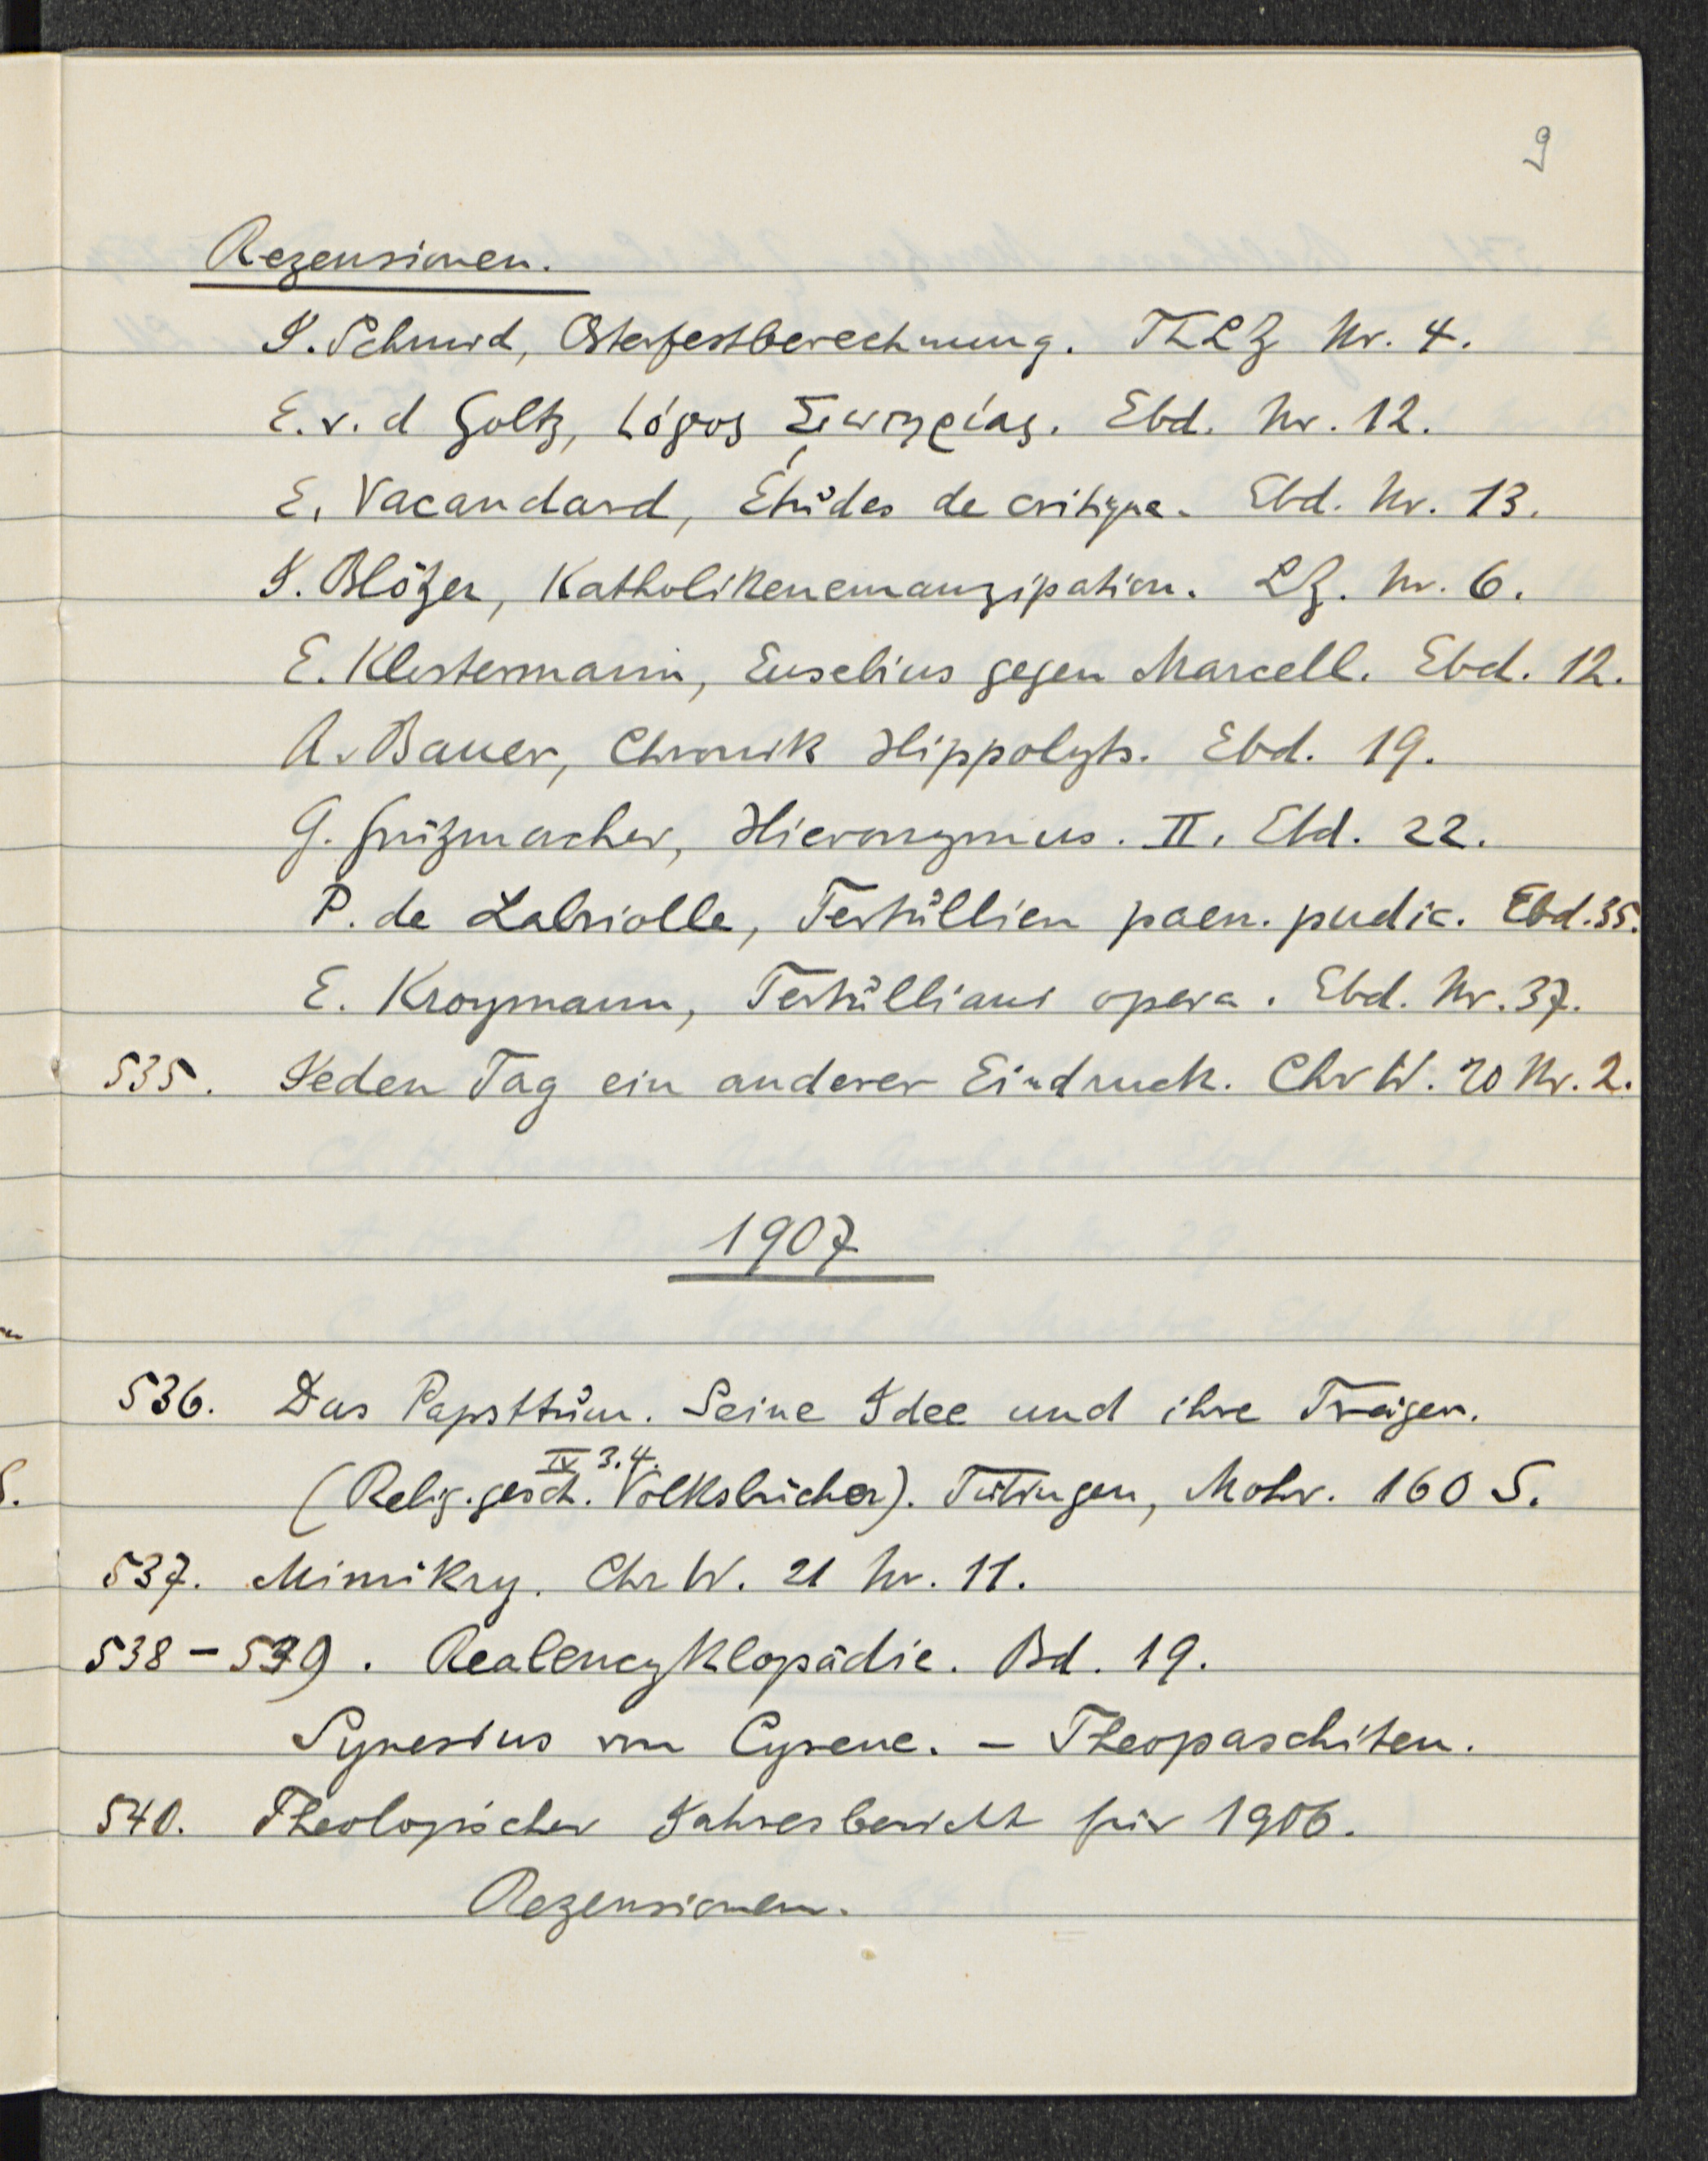 9
Rezensionen.
J. Schmid, Osterfestberechnung. ThLZ Nr. 4.
E. v. d Goltz, Λόγος Σωτηρίας. Ebd. Nr. 12.
E. Vacandard, Études de critique. Ebd. Nr. 13.
J. Blötzer, Katholikenemanzipation. LZ. Nr. 6.
E. Klostermann, Eusebius gegen Marcell. Ebd. 12.
A. Bauer, Chronik Hippolyts. Ebd. 19.
G. Grützmacher, Hieronymus. II. Ebd. 22.
P. de Labriolle, Tertullien paen. pudic. Ebd. 35.
E. Kroymann, Tertulliani opera. Ebd. Nr. 37.
535. Jeden Tag ein anderer Eindruck. Chr W. 20 Nr. 2.
1907
536. Das Papsttum. Seine Idee und ihre Träger.
IV 3.4.
(Relig.gesch. Volksbücher). Tübingen, Mohr. 160 S.
537. Mimikry. Chr W. 21 Nr. 11.
538-539. Realencyklopädie. Bd. 19.
Synesius von Cyrene. - Theopaschiten.
540. Theologischer Jahresbericht für 1906.
Rezensionen.